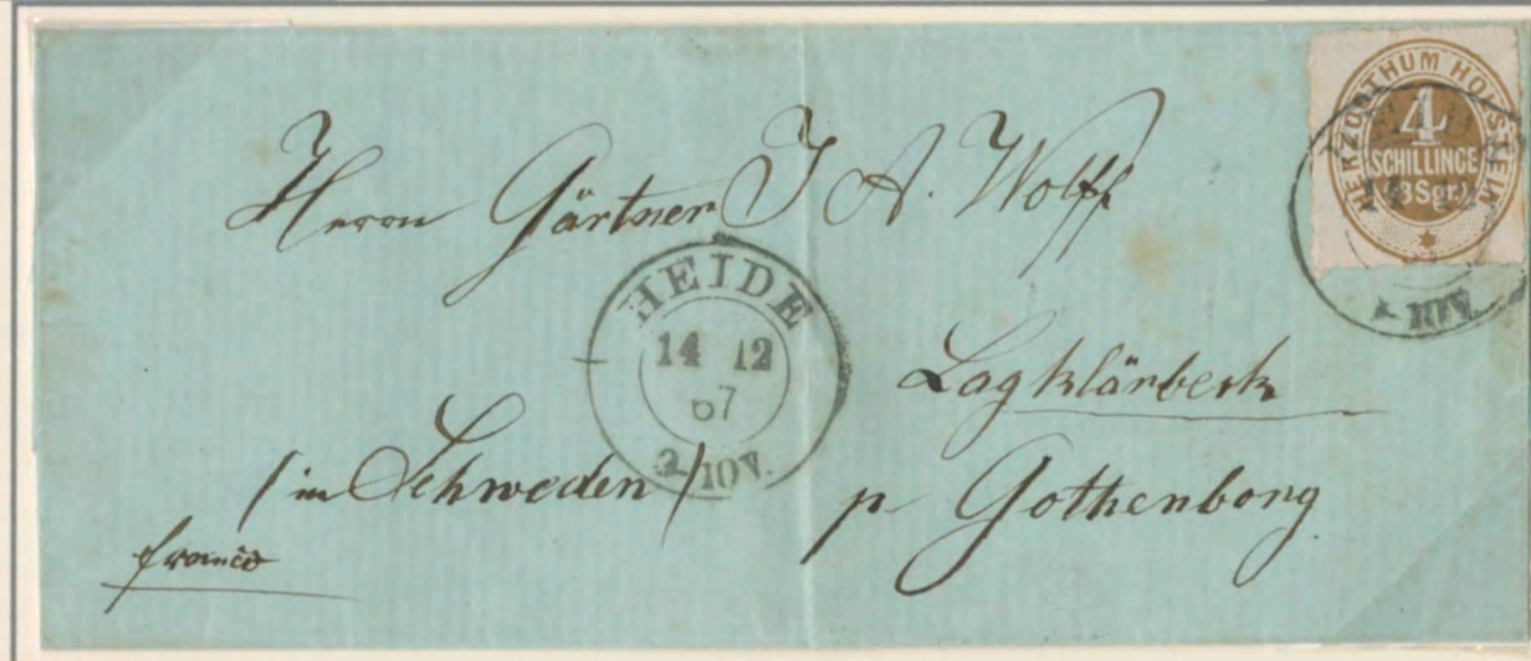 HERZOGTHUM HOLSTEIN
4
SCHILLINGE
(3 Sgr.)
14 12
10V.
Herrn Gärtner J A. Wolff
HEIDE
14 12
67
2 10V.
Lagklärbeck
(in Schweden)
p Gothenborg
franco